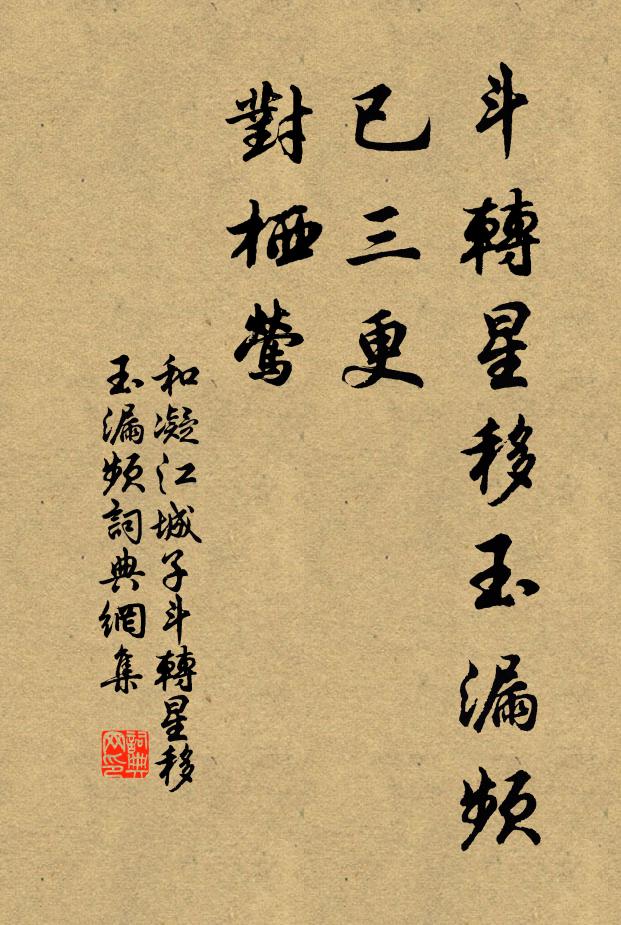 斗轉星移玉漏頻
已三更
對栖鶯
和凝江城子斗轉星移
玉漏頻詞典網集
詞典
网印